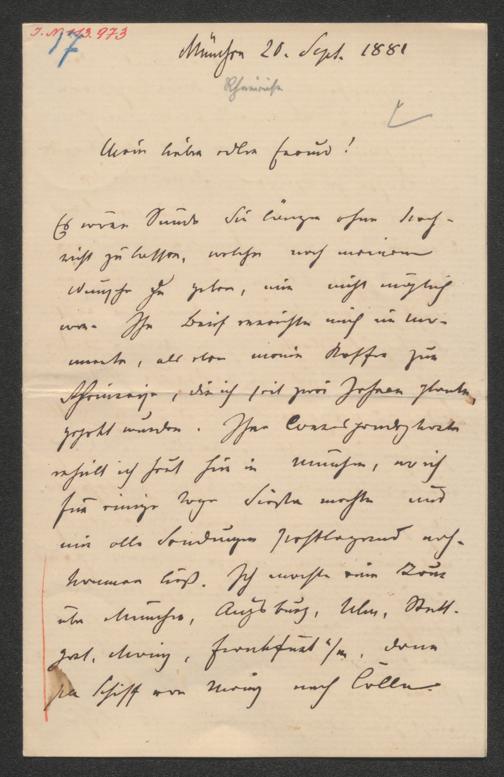 I. N. 113.973
17
München 20. Sept. 1881
Rheinreise
Mein lieber edler Freund!
Es wäre Sünde Sie länger ohne Nach-
richt zu lassen, welche nach meinem
Wunsche zu geben, mir nicht möglich
war. Ihr Brief erreichte mich im Mo-
mente, als eben meine Koffer zur
Rheinreise, die ich seit zwei Jahren plante,
gepackt wurden. Ihre Correspondenzkarte
erhielt ich heut hier in München, wo ich
für einige Tage Station machte und
mir alle Sendungen postlagernd nach-
kommen ließ. Ich machte eine Tour
über München, Augsburg, Ulm, Stutt-
gart, Mainz, Frankfurt a/M, dann
per Schiff von Mainz nach Cölln.